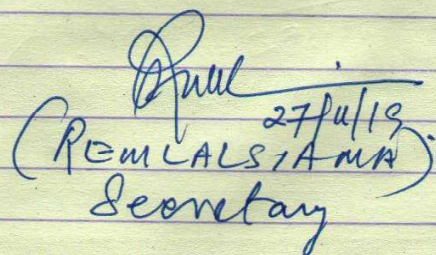 27/11/19
(REMLALSIAMA)
Secretary